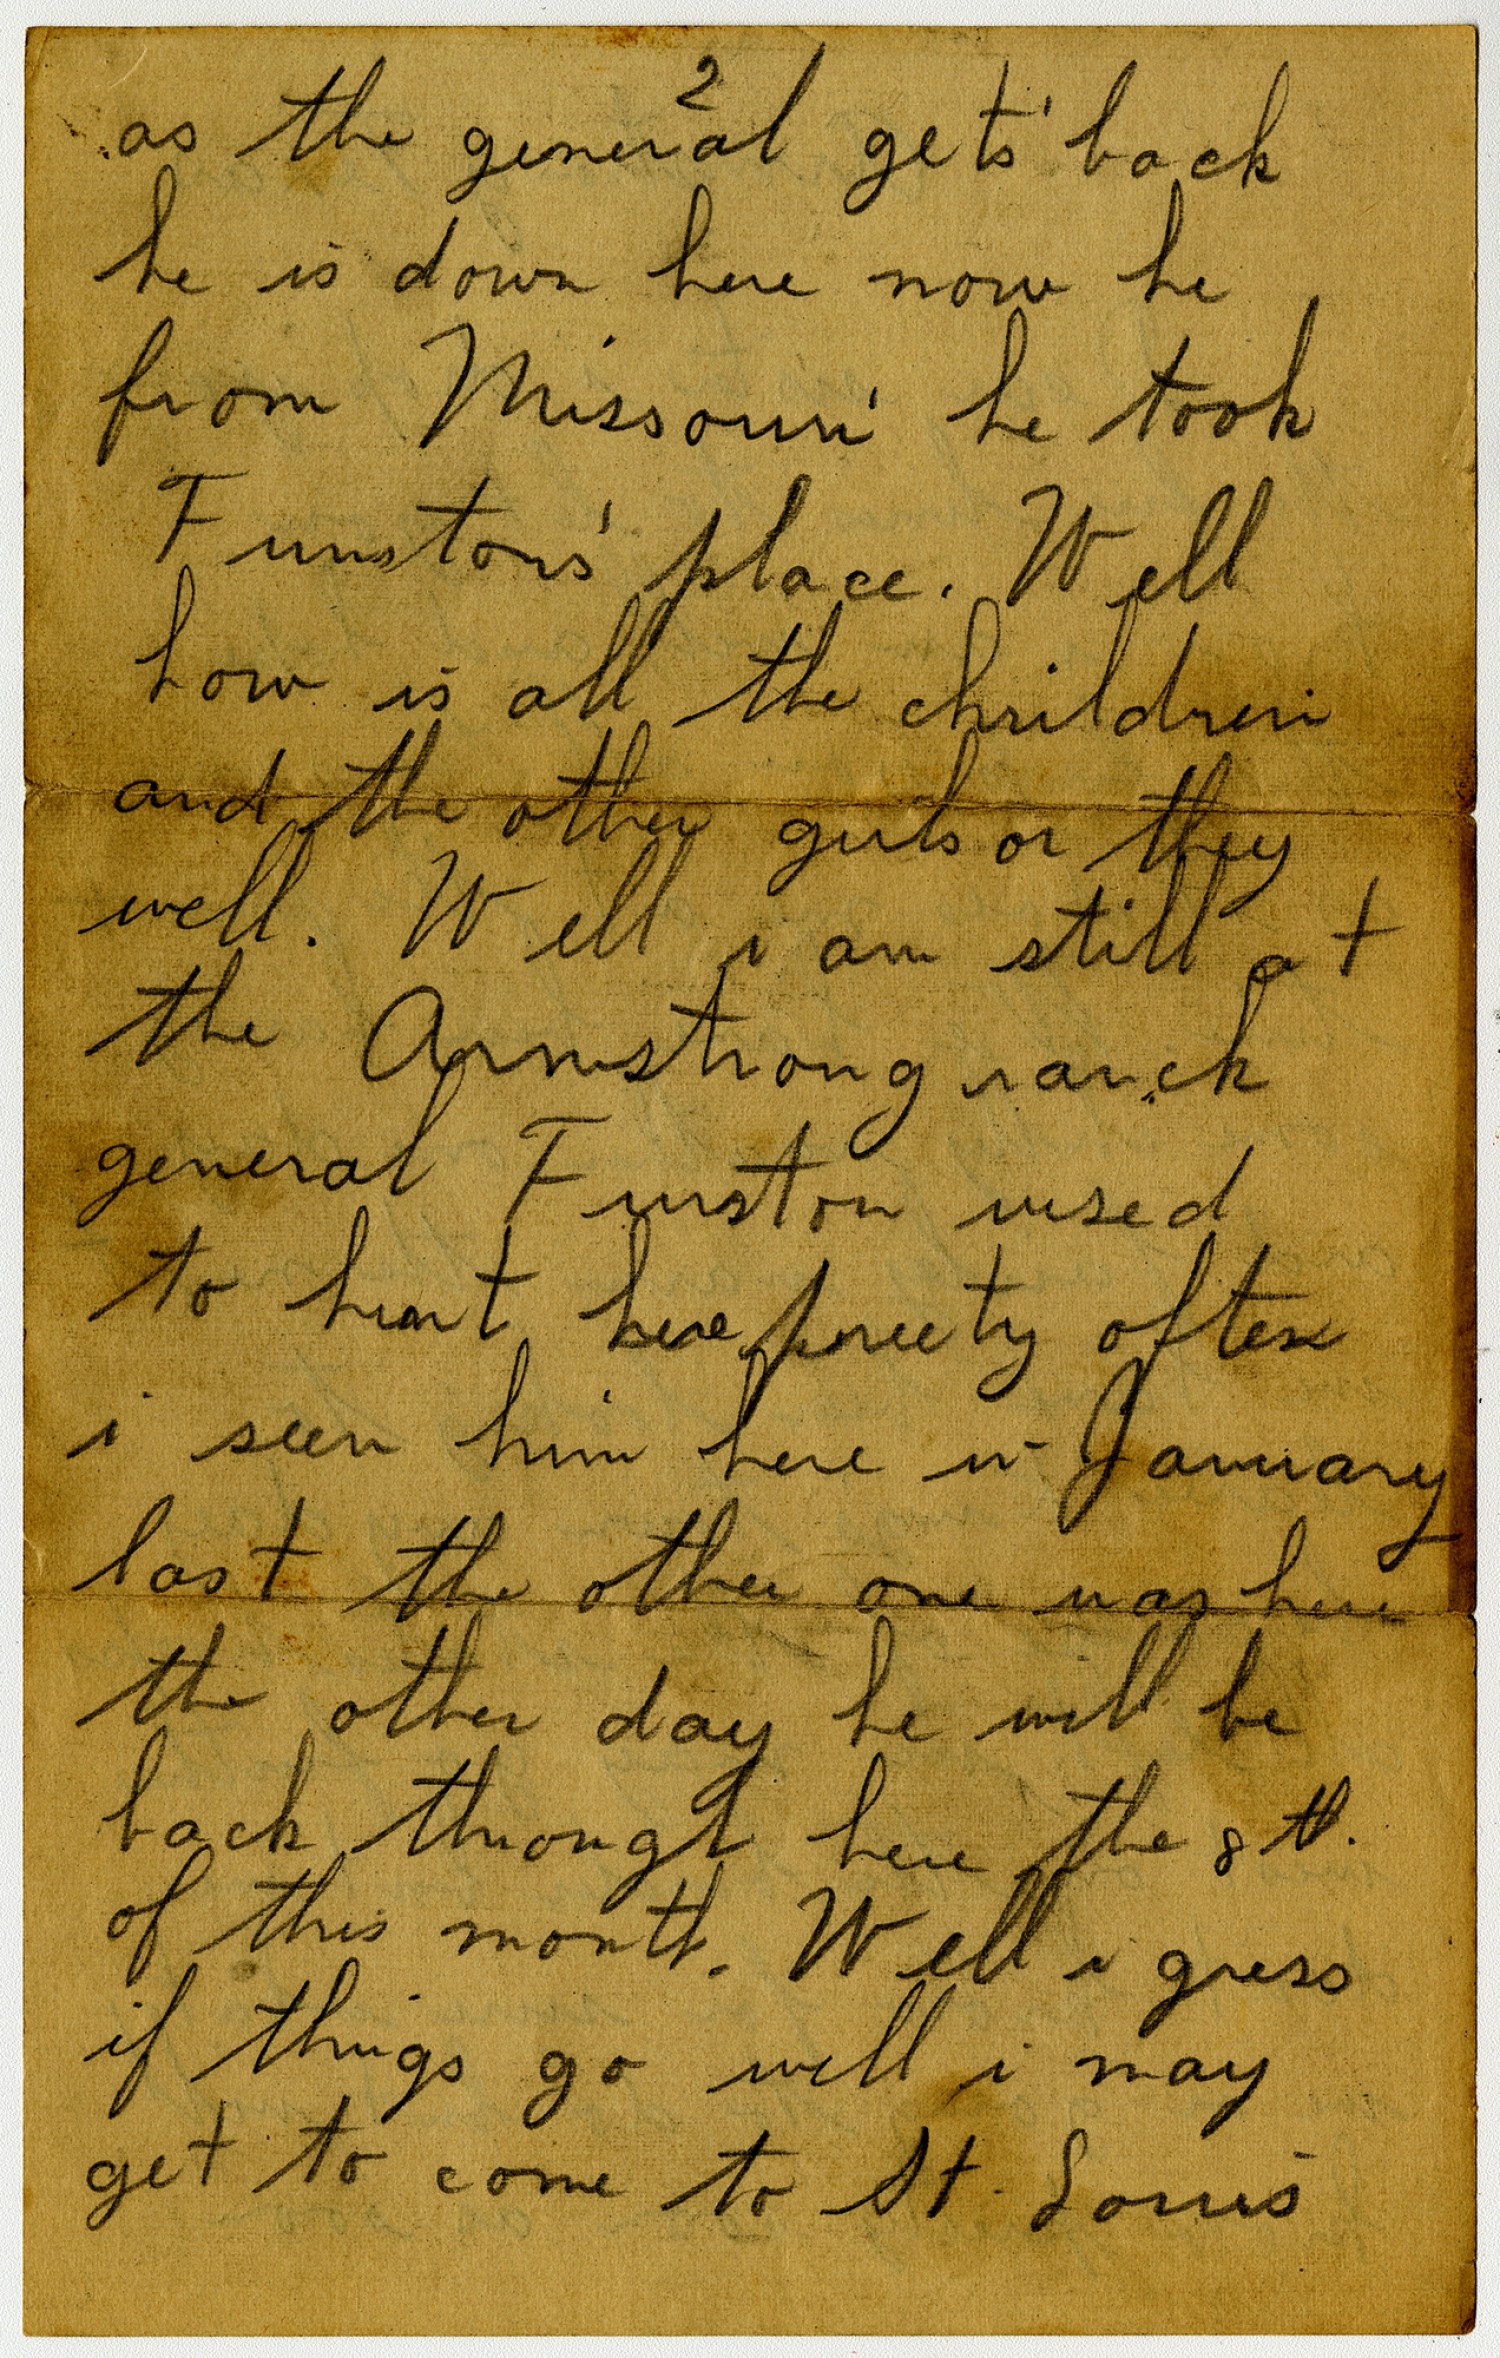 2
as the general gets back
he is down here now he
from Missouri he took
Funston's place. Well
how is all the children
and the other girls or they
well. Well i am still at
the Armstrong ranch
general Funston used
to hunt here preety often
i seen him here in January
last the other one was here
the other day he will be
back through here the 8th.
of this month. Well i guess
if things go well i may
get to come to St. Louis